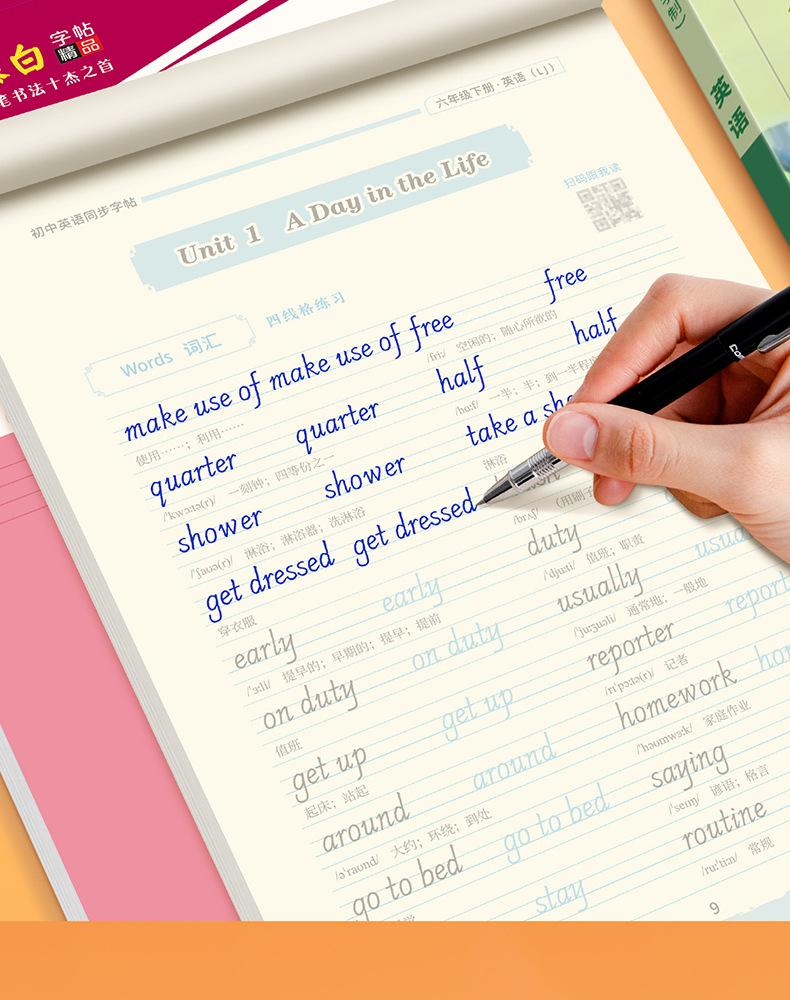 白 字帖
精品
笔书法十杰之首
英语
六年级下册·英语（LJ）
初中英语同步字帖
Unit 1 A Day in the Life
扫码跟我读
Words 词汇
四线格练习
make use of make use of free free
使用……；利用…… /friː/ 空闲的；随心所欲的
quarter quarter half half
/'kwɔːtə(r)/ 一刻钟；四等份之一 /hɑːf/ 一半；半；到一半程度
shower shower take a sho
/'ʃaʊə(r)/ 淋浴；淋浴器；洗淋浴 淋浴
get dressed get dressed
穿衣服 /brʌʃ/ （用刷子
early early duty
/'ɜːli/ 提早的；早期的；提早；提前 /'djuːti/ 值班；职责
on duty on duty usually usua
值班 /'juːʒuəli/ 通常地；一般地
get up get up reporter report
起床；站起 /rɪ'pɔːtə(r)/ 记者
around around homework hom
/ə'raʊnd/ 大约；环绕；到处 /'həʊmwɜːk/ 家庭作业
go to bed go to bed saying
/'seɪɪŋ/ 谚语；格言
stay routine
/ruː'tiːn/ 常规
9